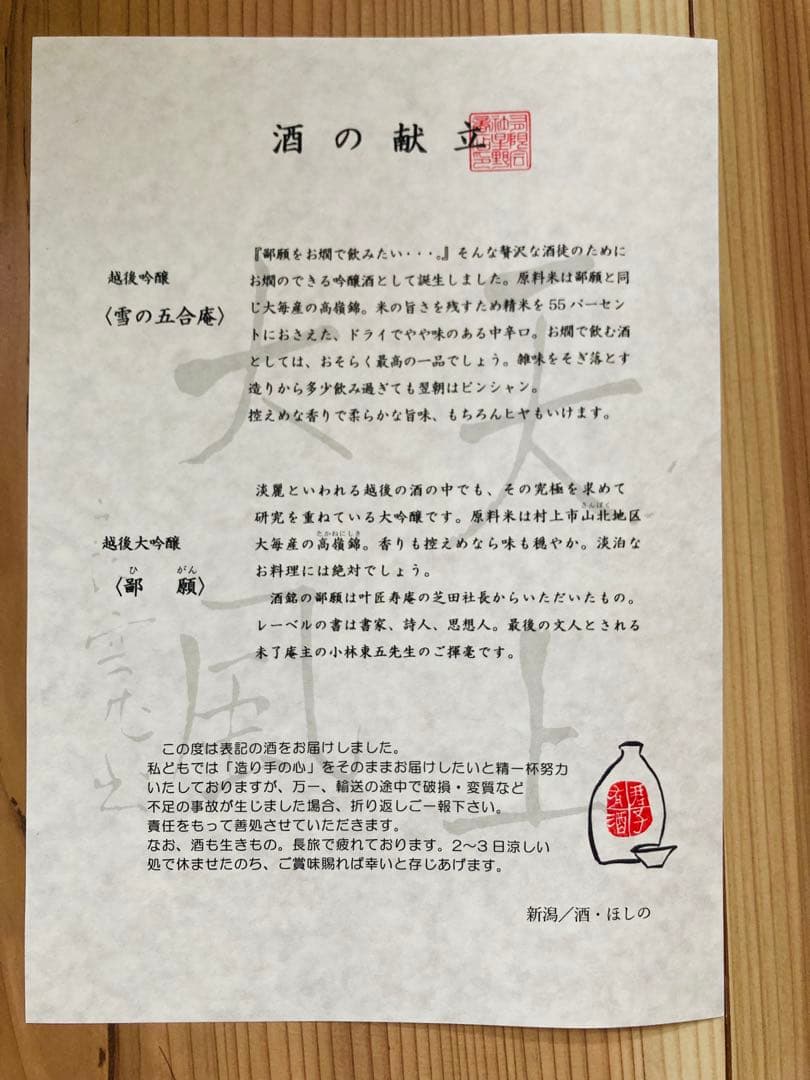 酒の献立
越後吟醸
〈雪の五合庵〉
『鄙願をお燗で飲みたい・・・。』そんな贅沢な酒徒のために
お燗のできる吟醸酒として誕生しました。原料米は鄙願と同
じ大毎産の高嶺錦。米の旨さを残すため精米を55パーセン
トにおさえた、ドライでやや味のある中辛口。お燗で飲む酒
としては、おそらく最高の一品でしょう。雑味をそぎ落とす
造りから多少飲み過ぎても翌朝はピンシャン。
控えめな香りで柔らかな旨味、もちろんヒヤもいけます。
越後大吟醸
ひ がん
〈鄙 願〉
淡麗といわれる越後の酒の中でも、その究極を求めて
さんぽく
研究を重ねている大吟醸です。原料米は村上市山北地区
たかねにしき
大毎産の高嶺錦。香りも控えめなら味も穏やか。淡泊な
お料理には絶対でしょう。
酒銘の鄙願は叶匠寿庵の芝田社長からいただいたもの。
レーベルの書は書家、詩人、思想人。最後の文人とされる
未了庵主の小林東五先生のご揮毫です。
この度は表記の酒をお届けしました。
私どもでは「造り手の心」をそのままお届けしたいと精一杯努力
いたしておりますが、万一、輸送の途中で破損・変質など
不足の事故が生じました場合、折り返しご一報下さい。
責任をもって善処させていただきます。
なお、酒も生きもの。長旅で疲れております。2〜3日涼しい
処で休ませたのち、ご賞味賜れば幸いと存じあげます。
新潟／酒・ほしの